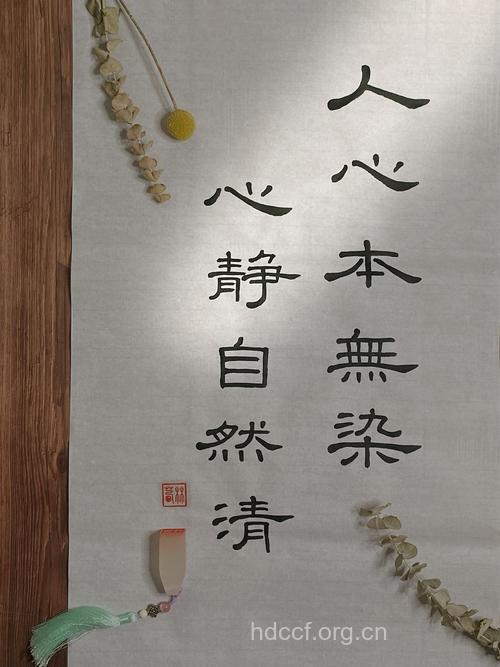 人心本無染
心静自然清
hdccf.org.cn